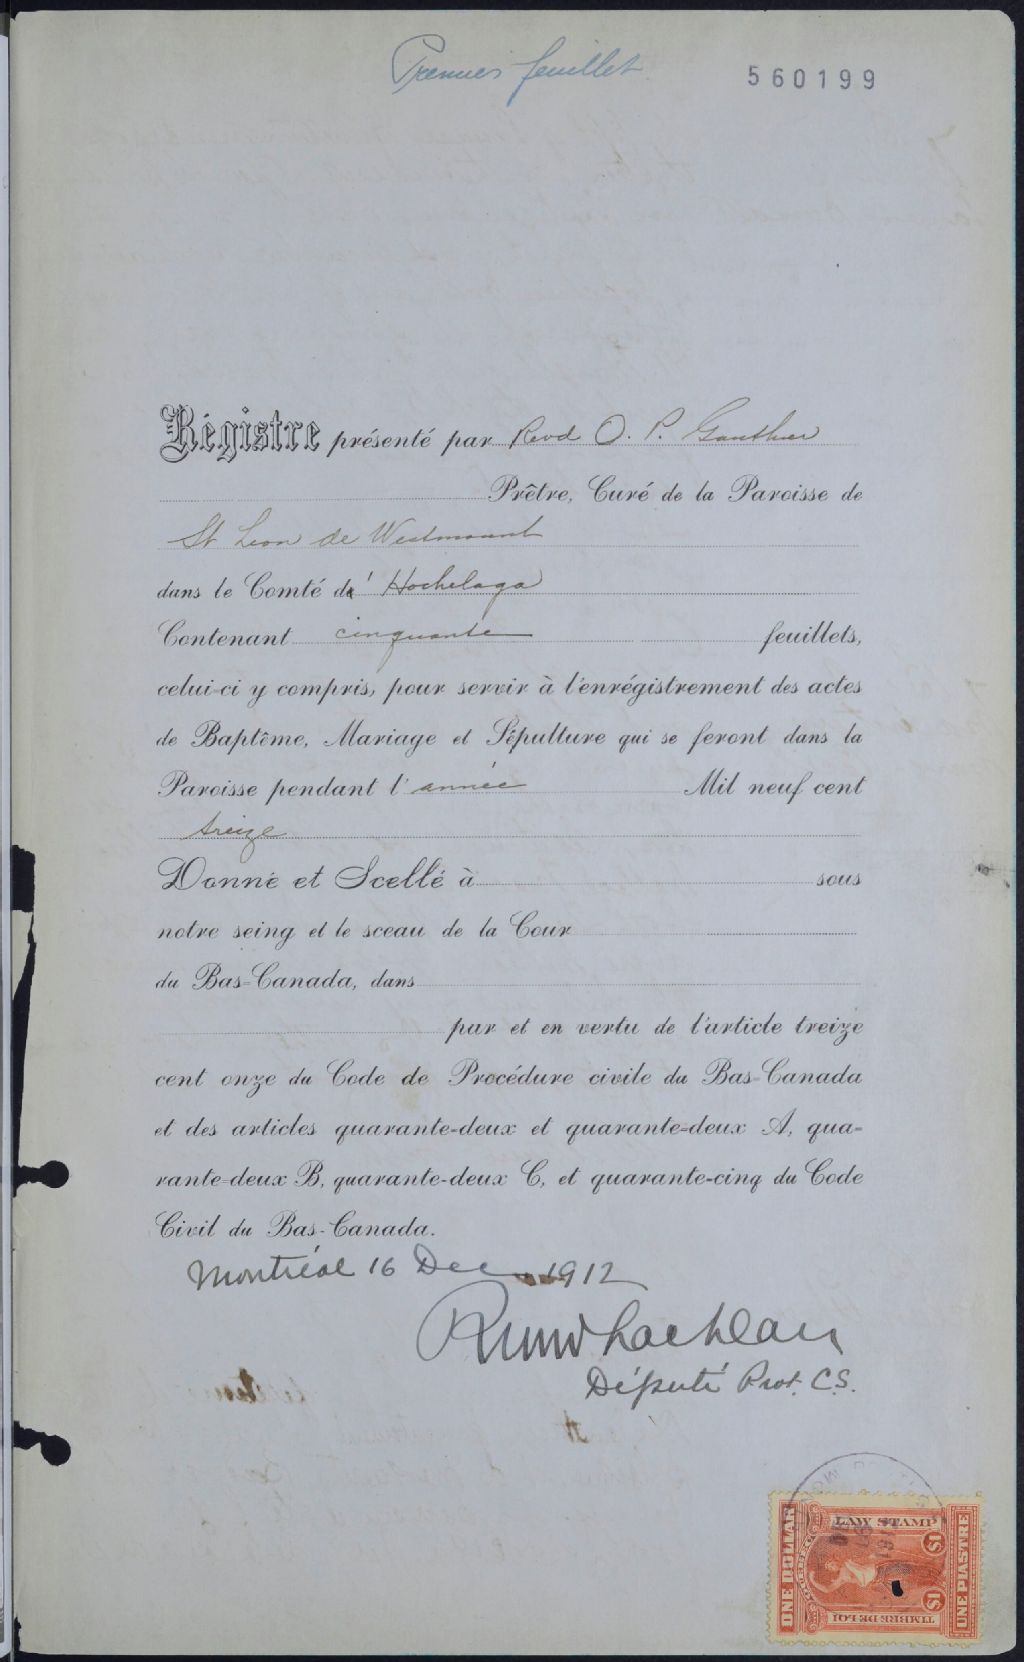 Premier feuillet
560199
Régistre présenté par Revd O. P. Gauthier
Prêtre, Curé de la Paroisse de
St Leon de Westmount
dans le Comté d' Hochelaga
Contenant cinquante feuillets,
celui-ci y compris, pour servir à l'enrégistrement des actes
de Baptême, Mariage et Sépulture qui se feront dans la
Paroisse pendant l'année Mil neuf cent
treize
Donné et Scellé à sous
notre seing et le sceau de la Cour
du Bas-Canada, dans
par et en vertu de l'article treize
cent onze du Code de Procédure civile du Bas-Canada
et des articles quarante-deux et quarante-deux A, qua-
rante-deux B, quarante-deux C, et quarante-cinq du Code
Civil du Bas-Canada.
Montréal 16 Dec 1912
Député Prot. C.S.
LAW STAMP
ONE DOLLAR
$1
$1
UNE PIASTRE
TIMBRE DE LOI